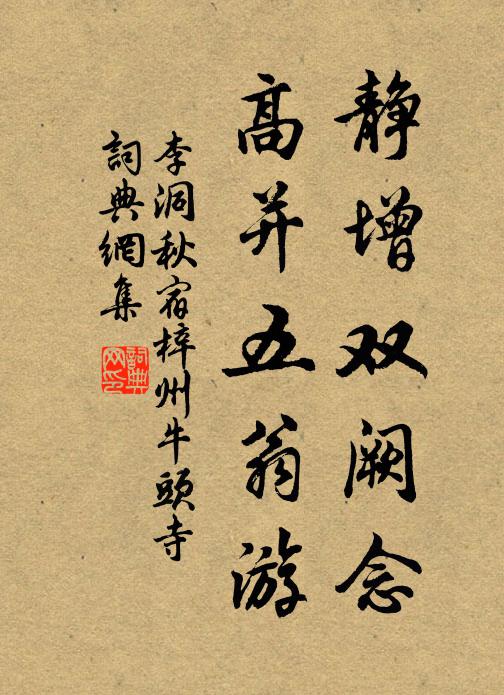 静增双阙念
高并五翁游
李洞秋宿梓州牛頭寺
詞典網集
詞典网印